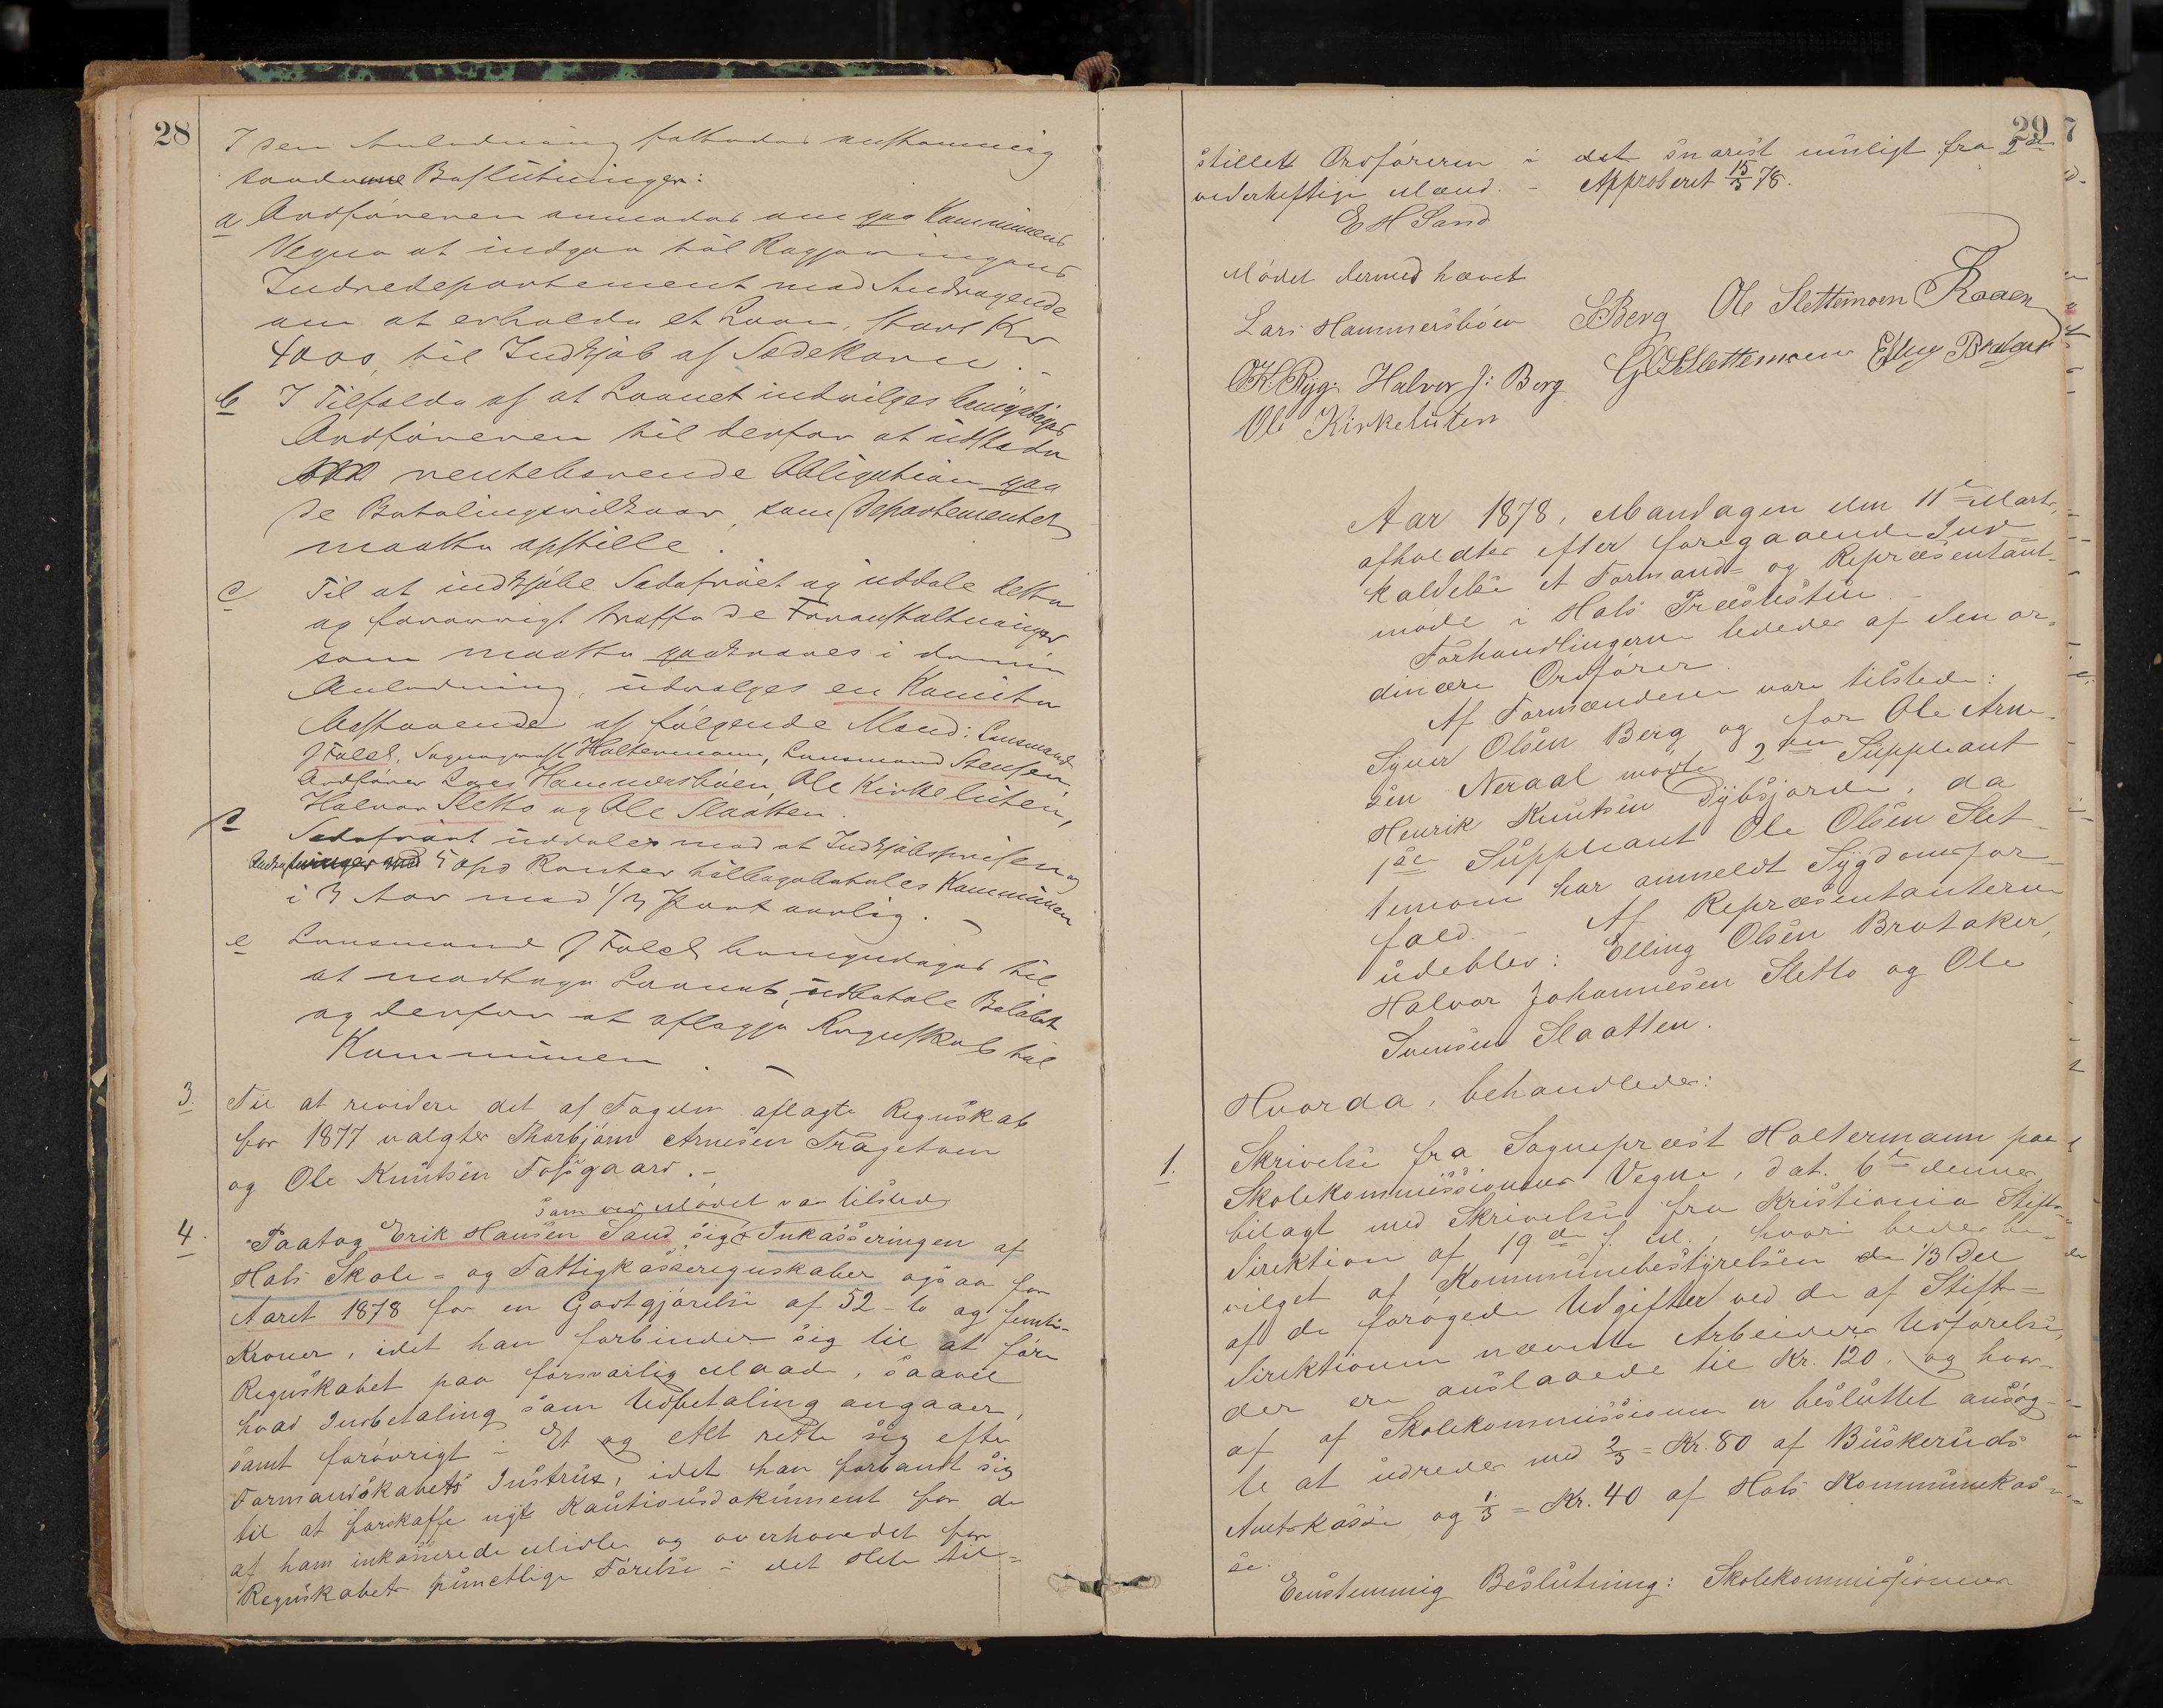 28
I den Anledning fattedes enstemmig
saadanne Beslutninger:
a Ordføreren anmodes om paa Kommunens
Vegne at indgaa til Regjeringens
Indredepartement med Andragende
om at erholde et Laan, stort Kr
4000, til Indkjøb af Sædekorn.-
b I Tilfælde af at Laanet indvilges bemyndiges
Ordføreren til derfor at udstede
rentebærende Obligation paa
de Betalingsvilkaar, som Departementet
maatte opstille.
c Til at indkjøbe Sædefrøet og uddele dette
og forøvrigt træffe de Foranstaltninger
som maatte paakræves i denne
Anledning, udvælges en Komite
bestaaende af følgende Mænd: Lensmand
J Faleh, Sogneprest Holtermann, Lensmand Stensen,
Ordfører Lars Hammersbøen, Ole Kirkeluten,
Halvor Sletto og Ole Slaatten.
d Sædefrøet uddeles mod at Indkjøbsprisen og
5 opd Renter tilbagebetales Kommunen
i 3 Aar med 1/3 Part aarlig. -
e Lensmand J Faleh bemyndiges til
at modtage Laanet, udbetale Beløbet
og derfor at aflægge Regnskab til
Kommunen. -
3. Til at revidere det af Fogden aflagte Regnskab
for 1877 valgtes Thorbjørn Arnesen Trageton
og Ole Knutsen Fossgaard.-
som ved Mødet var tilstede
4. Paatog Erik Hansen Sand sig Inkasseringen af
Hols Skole- og Fattigkasseregnskaber ogsaa for
Aaret 1878 for en Godtgjørelse af 52 - to og femti-
Kroner, idet han forbinder sig til at føre
Regnskabet paa forsvarlig Maade, saavel
hvad Indbetaling som Udbetaling angaaer,
samt forøvrigt i Et og Alt rette sig efter
Formandskabets Instrux, idet han forbandt sig
til at forskaffe nyt Kautionsdokument for de
af ham inkasserede Midler og overhovedet for
Regnskabets punctlige Førelse i det Hele til=
29
stillet Ordføreren i det snarest muligt fra 2de
vederheftige Mænd. - Approberet 15/3 78.
E H Sand
Mødet dermed hævet
Lars Hammersbøen S Berg Ole Slettemoen
O K Ryg. Halvor J: Berg G O Slettemoen Elling Brataker
Ole Kirkeluten
Aar 1878, Mandagen den 11te Marts,
afholdtes efter foregaaende Ind-
kaldelse et Formands- og Repræsentant-
møde i Hols Præstestue.-
Forhandlingerne lededes af den or-
dinære Ordfører.
Af Formændene vare tilstede:
Syver Olsen Berg og for Ole Arne-
sen Neraal mødte 2den Suppleant
Henrik Knutsen Dybsjorde, da
1ste Suppleant Ole Olsen Slet-
temoen har anmeldt Sygdomsfor-
fald. - Af Repræsentanterne
udeblev: Elling Olsen Brataker,
Halvor Johannesen Sletto og Ole
Svensen Slaatten.
Hvorda, behandledes:
1. Skrivelse fra Sogneprest Holtermann paa
Skolekommissionens Vegne, dat. 6te dennes
bilagt med Skrivelse fra Kristiania Stifts-
direktion af 19de f. M., hvori bedes be-
vilget af Kommunebestyrelsen de 1/3 Del
af de forøgede Udgifter ved de af Stift=
direktionen nævnte Arbeiders Udførelse,
der er anslaaede til Kr. 120. og hvor-
af af Skolekommissionen er besluttet ansøg-
te at udredes med 2/3 = Kr. 80 af Buskeruds
Amtskasse og 1/3 = Kr. 40 af Hols Kommunekas-
se.
Eenstemmig Beslutning: Skolekommissionens